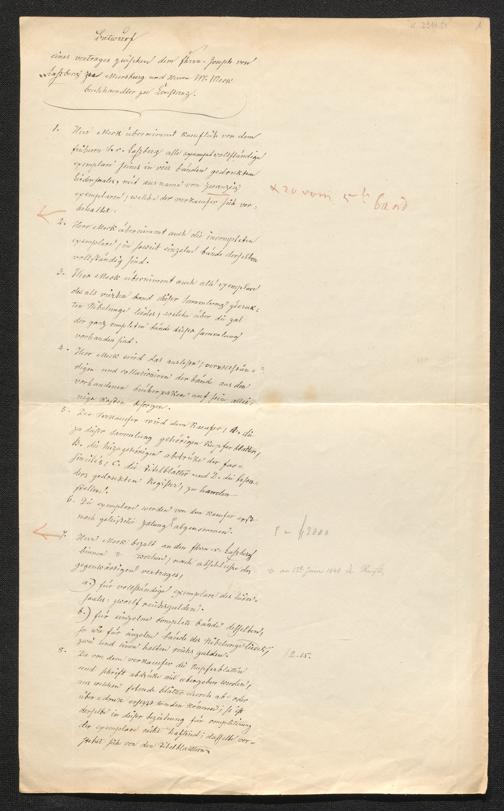 Entwurf
eines vertrages zwischen dem Herrn Joseph von
Laßberg zu Meersburg und Herrn M. Meck
buchhandler zu Constanz.
1. Herr Meck übernimmt kauflich von dem
freiherrn J. v. Laßberg alle vollständige
exemplare seines in vier bänden gedrukten
liedersaales, mit ausname von zwanzig
exemplaren, welche der verkaufer sich vor-
behaltet.
x 20 vom 4ten band
2. Herr Meck übernimmt auch die incompleten
exemplare, in soweit einzelne bände derselben
vollständig sind.
3. Herr Meck übernimmt auch alle exemplare
des als vierten band dieser Sammlung gedruk-
ten Nibelunge liedes, welche über die zal
der ganz completen bände dieser sammlung
vorhanden sind.
4. Herr Meck wird das auslesen,
digen und collationieren der bände aus den
vorhandenen auf seine allei-
nige kosten besorgen.
5. Der Verkaufer wird dem Kaufer, A. die
zu dieser Sammlung gehörigen Kupferblatten,
B. die hiezugehörigen abdrüke der fac-
similes, C. die titelblätter und D. die
gedrukten Register, zu handen
stellen.
6. Die exemplare werden von dem kaufer erst
nach geleisteter zalung abgenommen.
7. Herr Meck bezalt an den Herrn v. Laßberg
binnen wochen, nach abschlusse des
gegenwärtigen vertrages,
a.) für vollständige exemplare des lieder-
saales: zwölf reichsgulden.
b.) für einzelne complete bände desselben,
so wie für einzelne bände des Nibelunge liedes,
zwei und einen halben reichs gulden.
2.15.
8. Da von dem verkaufer die Kupferblatten
und schrift abdrüke mit übergeben werden,
aus welchen felende blätter durch ab- oder
überdruk ersezt werden können; so ist
derselbe in dieser beziehung für completirung
der exemplare nicht haftend; dasselbe ver-
stehet sich von den titelblättern